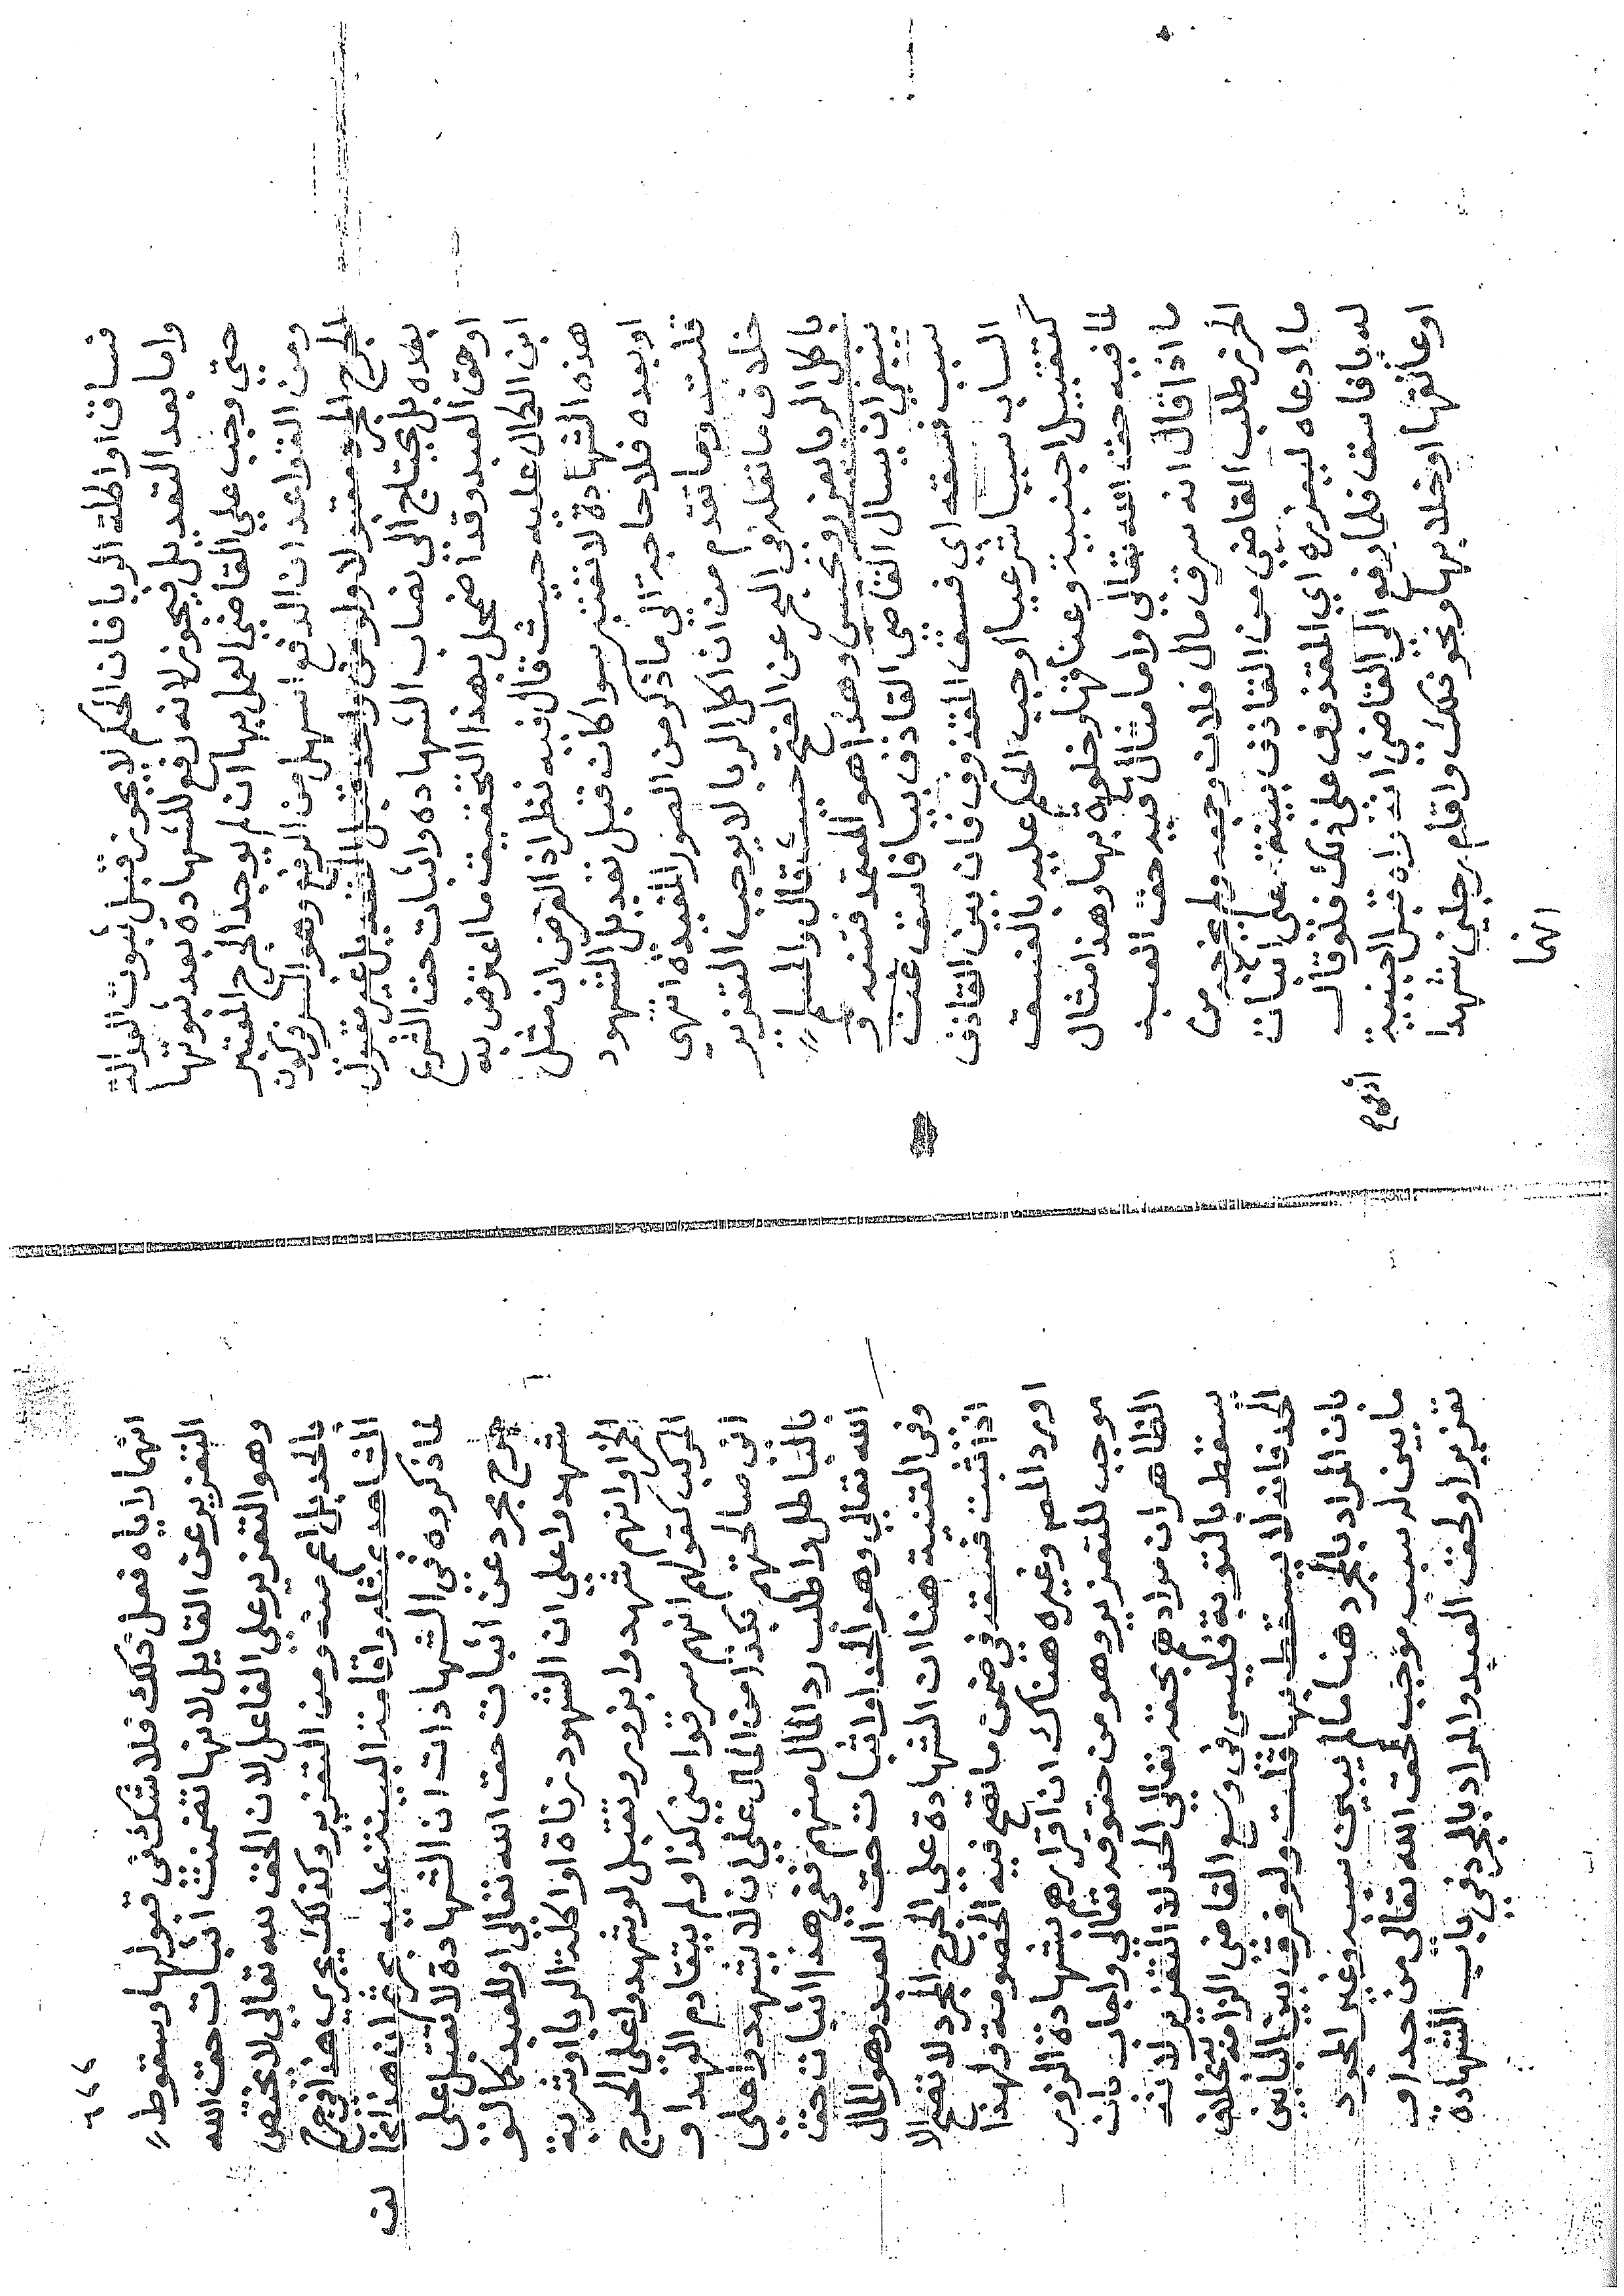 فساق او اكلة الربا فان الحكم لا يجوز قبل ثبوت العدالة
واما بعد التعديل فيجوز لانه دفع للشهاده بعد ثبوتها
حتي وجب علي القاضي العمل بها ان لم يوجد الجرح المعتبر
ومن القواعد ان الدفع اسهل من الرفع وهو السر في كون
الجرح المجرد مقبولا ولو من واحد قبل التعديل غير مقبول
بعده بل يحتاج الي نصاب الشهاده واثبات حق الشرع
او حق العبد وقد اضمحل بهذا التحقيق ما اعترض به
ابن الكمال عليه حيث قال فيه نظر اذ الغرض ان مثل
هذه الشهادة لا تعتبر سوا كان قبل تعديل الشهود
او بعده فلا حاجة الي ما ذكر من الصور المقيده انتهي
قلت وما تقدم من ان اكل الربا لا يوجب التعزير
خلاف ما نقله في البحر عن الفتح حيث قال والمسلم
ياكل الربا يعزر ويحبس وهذا هو المعتمد فتنبه و
ينبغي ان يسال القاضي القاذف بيا فاسق عن
سبب فسقه اي فسق المقذوف فان بين القاذف
الساب سببا شرعيا اوجب الحكم عليه بالفسق
كتقبيل اجنبية وعناقها وخلوة بها وهذا مثال
لما فيه حق الله تعالي واما مثال ما فيه حق العبد
ما اذا قال انه سرق مال فلان وجحد واخرجه من
الحرز طلب القاضي من القاذف بينة علي اثبات
ما ادعاه ليعزره اي المقذوف علي ذلك فلو قال
له يا فاسق فلما رفع الي القاضي ادعي انه راه قبل اجنبية
او عانقها او خلا بها ونحو ذلك واقام رجلين شهدا
انهما
٢٤٤
انهما راياه فعل ذلك فلا شك في قبولها وسقوط
التعزير عن القايل لانها تضمنت اثبات حق الله
وهو التعزير علي الفاعل لان الحق لله تعالي لا يختص
بالحد بل اعم منه ومن التعزير وكذلك يجري هذا في جرح
الشاهد بمثله واقامة البينة عليه بجرم ان هذا مخالف
لما ذكروه في الشهادات ان الشهادة لا تقبل علي
جرح مجرد عن اثبات حق الله تعالي او للعبد كما لو
شهدوا علي ان الشهود زناة او اكلة الربا او شربة
الخمر او انهم شهدوا بزور وتقبل لو شهدوا علي الجرح
المركب كقولهم انهم سرقوا مني كذا ولم يتقادم العهد او
اني صالحتهم بكذا من المال علي ان لا يشهدوا علي
بالباطل واطلب رد المال منهم ففي هذا اثبات حق
الله تعالي وهو الحد او اثبات حق العبد وهو المال
وفي القنية هنا ان الشهادة علي الجرح المجرد لا تصح الا
اذا ثبت فسقه في ضمن ما تصح فيه الخصومة ولهذا
اورد المص وغيره هناك ان اقرارهم بشهادة الزور
موجب للتعزير وهو من حقوقه تعالي واجاب بان
الظاهر ان مرادهم بحقه تعالي الحد لا التعزير لانه
يسقط بالتوبة فليس في وسع القاضي الزامه بخلاف
الحد فانه لا يسقط بها قلت ولو فرق بين البابين
بان المراد بالمجرد هنا ما لم يبين سببه وغير المجرد
ما بين له سبب موجب لحق الله تعالي من حد او
تعزير او لحق العبد والمراد بالمجرد في باب الشهادة